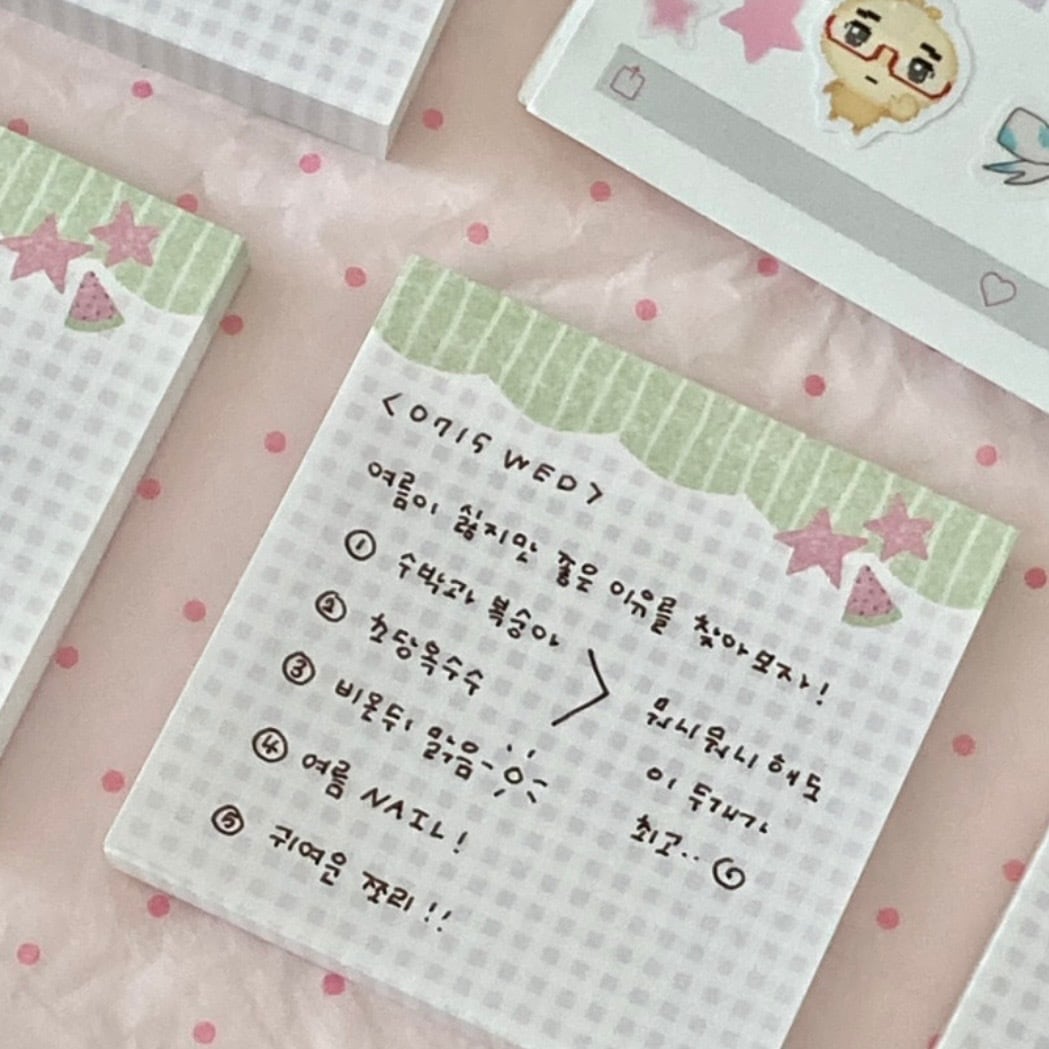 <0715 WED>
여름이 싫지만 좋은 이유를 찾아보자!
① 수박과 복숭아
② 초당옥수수
③ 비온뒤 맑음~
④ 여름 NAIL!
⑤ 귀여운 쪼리!!
뭐니뭐니해도
이 두개가
최고..